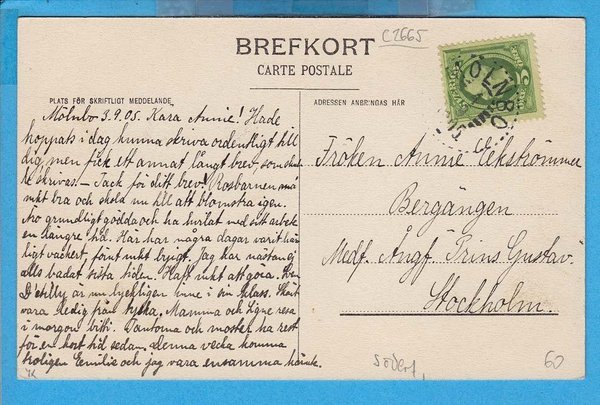 C2665
BREFKORT
CARTE POSTALE
PLATS FÖR SKRIFTLIGT MEDDELANDE
ADRESSEN ANBRINGAS HÄR
MÖLNBO
Mölnbo 3.9.05. Kära Annie! Hade
hoppats i dag kunna skriva ordentligt till
dig, men fick ett annat långt brev, som skulle
skrivas. – Tack för ditt brev! Rosbarnen må
mkt bra och till att blomstra igen.
grundligt och ha med sitt
en längre tid. Här har några dagar varit
vackert, förut mkt Jag har nästan ej
alls badat sista tiden. Haft mkt att göra.
är nu lyckligen inne i sin klass. Skönt
vara ledig från Mamma och Signe resa
i morgon bitti. Tanterna och moster ha rest
för en kort tid sedan. Denna vecka komma
troligen Emilie och jag vara ensamma
Fröken Annie Ekströmmer
Bergängen
Medf. Ångf. Prins Gustav
Stockholm.
60